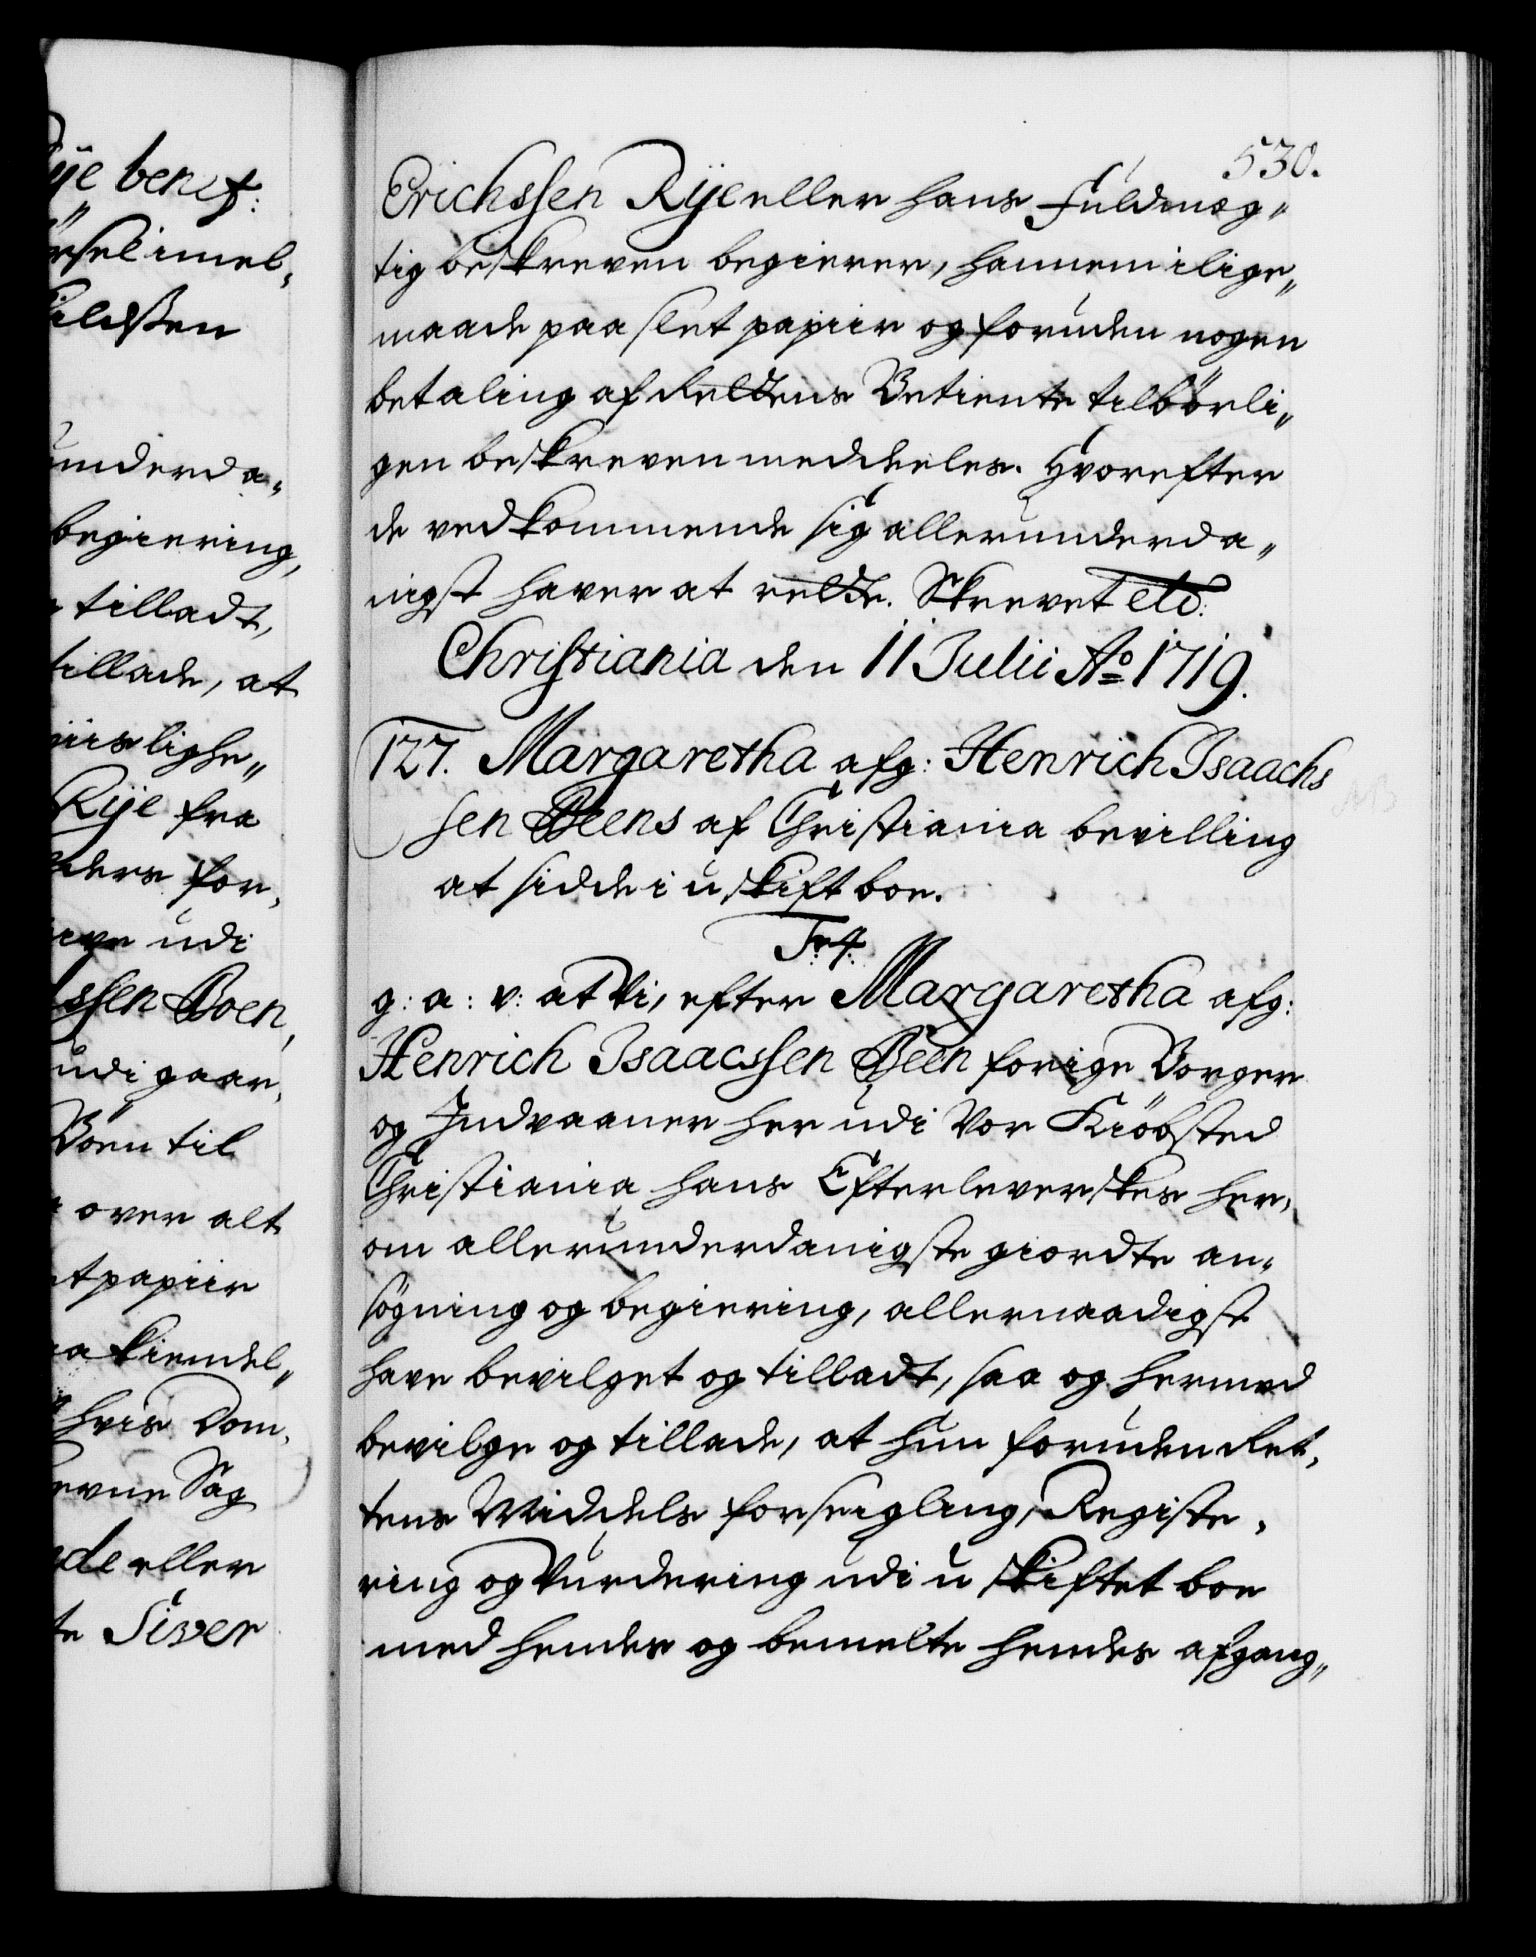 ÿe benef:
rsel imel,
ildssen
underda„
begiering,
tilladt,
tillade, at
viislighe„
Rÿe fra
ders for,
ive udi
ssen Boen,
udi gaar,
Böen til
over alt
tpapiir
kiendel„
hvis Dom,
evne Sag
de eller
te Siver
530.
Erichssen Rÿe eller hans fuldmæg„
tig beskreven begierer, hannem ilige„
maade paa slet papiir og foruden nogen
betaling af Rettens Betiente tilbörli„
gen beskreven meddeeles. Hvorefter
de vedkommende sig allerunderda„
nigst haver at rette. Skrevet etc:
Christiania den 11 Julii Ao 1719.
127. Margaretha afg: Henrich Isaachs
sen Beens af Christiania bevilling
at sidde i uskift boe.
F: 4.
g: a: v: at Vi, efter Margaretha afg:
Henrich Isaacssen Been forige Borger
og Indvaaner her udi Vor Kiöbsted
Christiania hans Efterleverskes her,
om allerunderdanigste giordte an„
sögning og begiering, allernaadigst
have bevilget og tilladt, saa og hermed
bevilge og tillade, at hun foruden Ret,
tens Middels forseigling, Registe,
ring og Vurdering udi uskiftet boe
med hendes og bemelte hendes afgang„